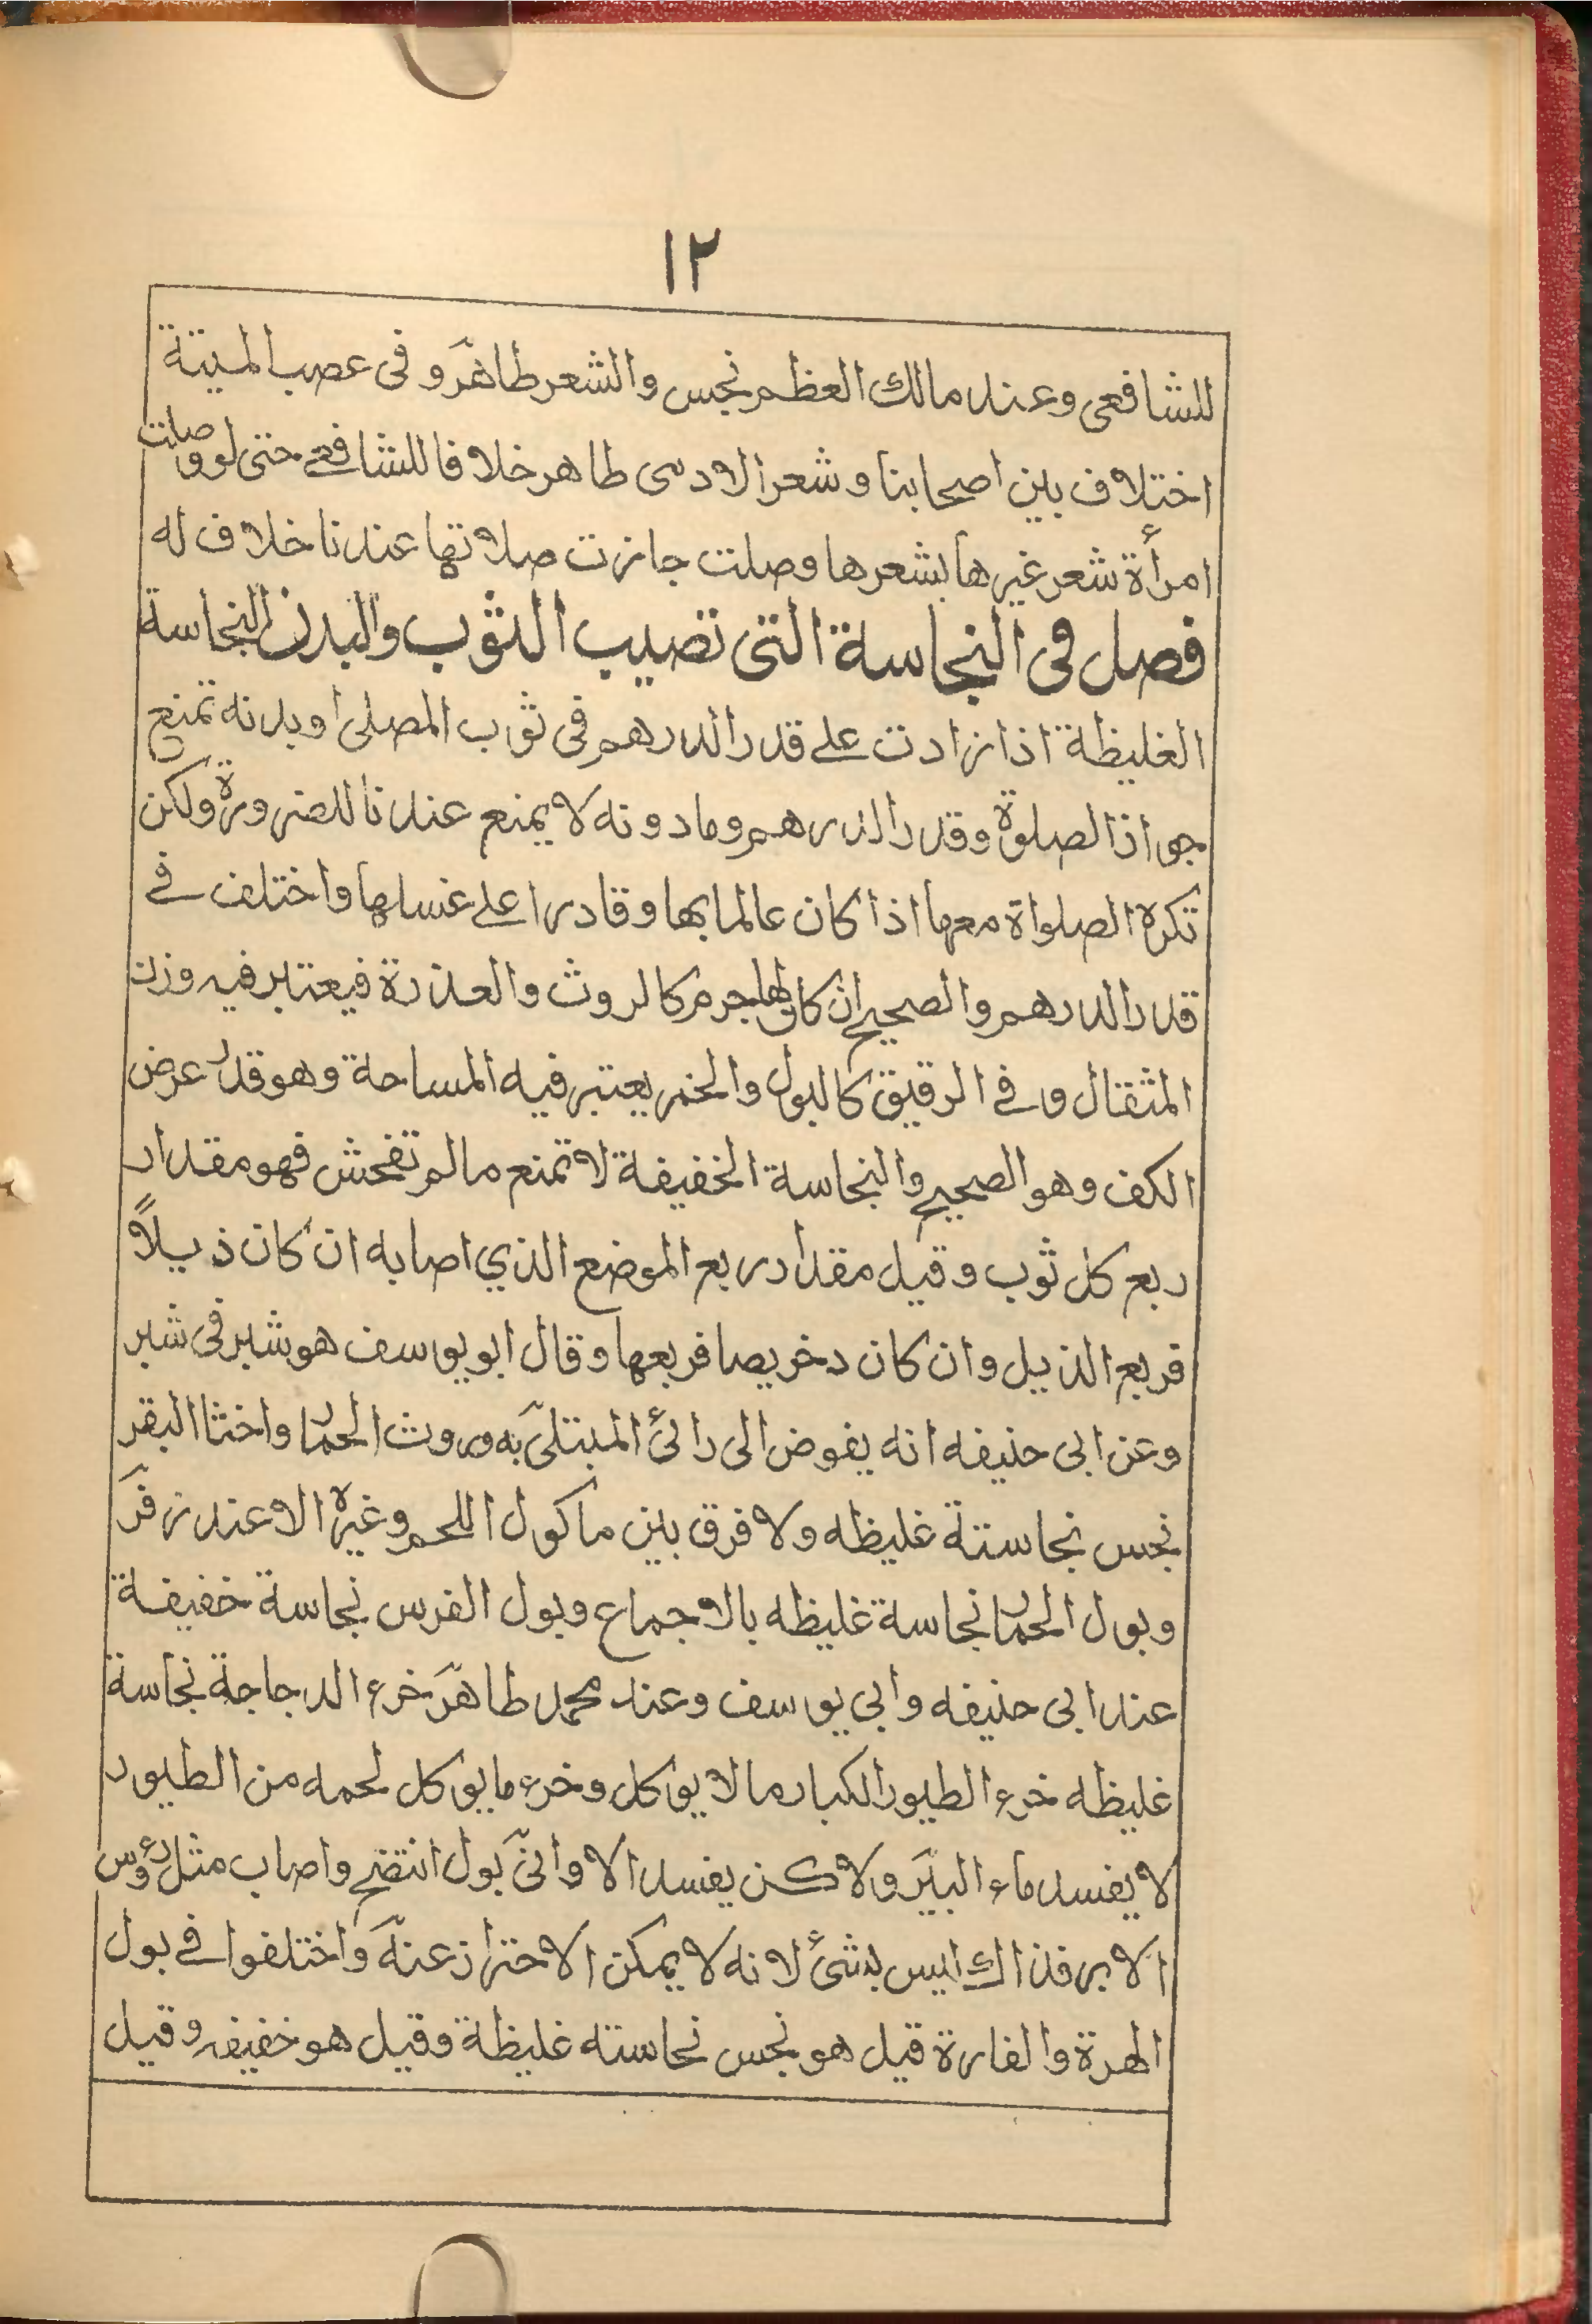 ١٢
للشافعى وعند مالك العظم نجس والشعر طاهر وفى عصب الميتة
اختلاف بين اصحابنا وشعر الادمى طاهر خلافا للشافعے حتى لو وصلت
امرأة شعر غيرها بشعرها وصلت جازت صلاتها عندنا خلاف له
فصل فى النجاسة التى تصيب الثوب والبدن النجاسة
الغليظة اذا زادت علے قدر الدرهم فى ثوب المصلى او بدنه تمنع
جواذ الصلوة وقدر الدرهم وما دونه لا يمنع عندنا للضرورة ولكن
تكره الصلواة معها اذا كان عالما بها وقادرا علے غسلها واختلف فے
قدر الدرهم والصحيح ان كان لها جرم كالروث والعذرة فيعتبر فيه وزن
المثقال وفے الرقيق كالبول والخمر يعتبر فيه المساحة وهو قدر عرض
الكف وهو الصحيح والنجاسة الخفيفة لا تمنع مالم تفحش فهو مقدار
ربع كل ثوب وقيل مقدار ربع الموضع الذي اصابه ان كان ذيلاً
فربع الذيل وان كان دخريصا فربعها وقال ابو يوسف هو شبر فى شبر
وعن ابى حنيفه انه يفوض الى رائ المبتلى به وروث الحمار واخثا البقر
نجس نجاستة غليظه ولا فرق بين ماكول اللحم وغيره الا عند زفر
وبول الحمار نجاسة غليظه بالاجماع وبول الفرس نجاسة خفيفة
عند ابى حنيفه وابي يوسف وعند محمد طاهر خرء الدجاجة نجاسة
غليظه خرء الطيور الكبار مالا يوكل وخرء ما يوكل لحمه من الطيور
لا يفسد ماء البئر ولاكن يفسد الاوانى بول انتضح واصاب مثل رؤس
الابر فذالك ليس بشئ لانه لا يمكن الاحتراز عنه واختلفوا فے بول
الهرة والفارة قيل هو نجس نحاسته غليظة وقيل هو خفيفه وقيل